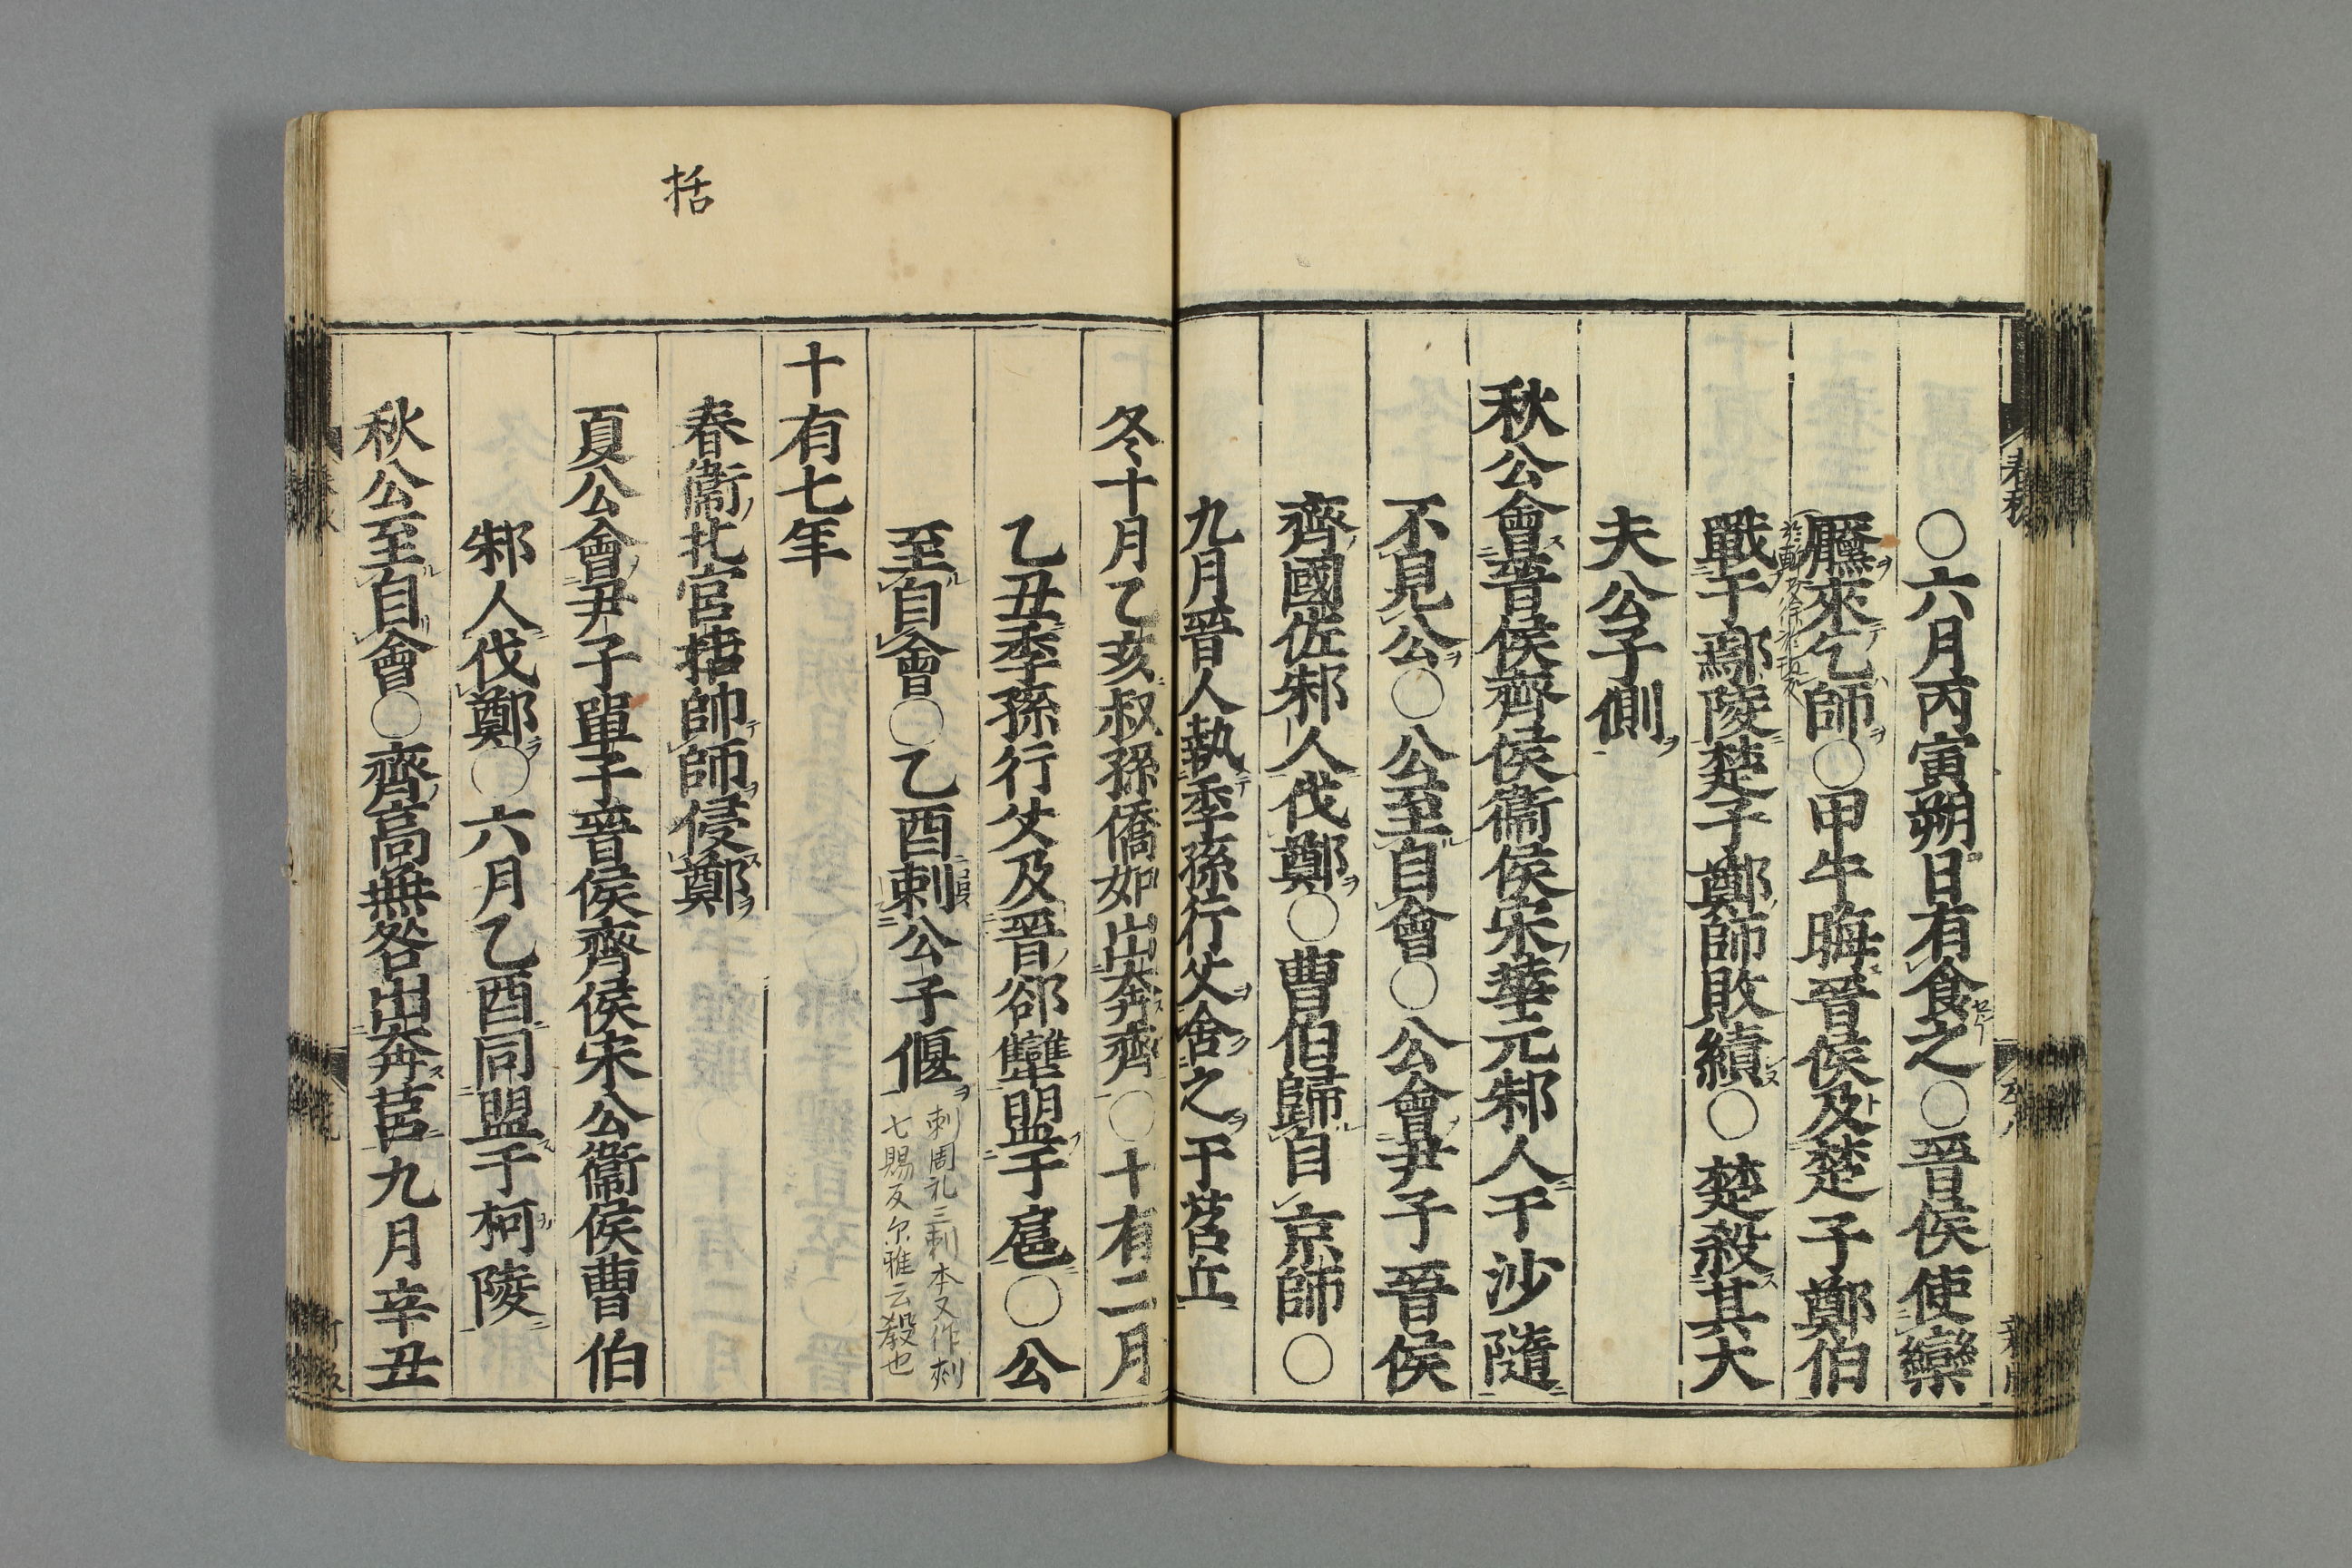 ○六月丙寅朔日有食之○晉侯使欒
黶來乞師○甲午晦晉侯及楚子鄭伯
戰于鄢陵楚子鄭師敗績○楚殺其大
夫公子側
秋公會晉侯齊侯衞侯宋華元邾人于沙隨
不見公○公至自會○公會尹子晉侯
齊國佐邾人伐鄭○曹伯歸自京師○
九月晉人執季孫行父舍之于苕丘
冬十月乙亥叔孫僑如出奔齊○十有二月
乙丑季孫行父及晉郤犨盟于扈○公
至自會○乙酉刺公子偃
刺周礼三刺本又作刾
七賜反尓雅云殺也
十有七年
括
春衞北宮括帥師侵鄭
夏公會尹子單子晉侯齊侯宋公衞侯曹伯
邾人伐鄭○六月乙酉同盟于柯陵
秋公至自會○齊高無咎出奔莒九月辛丑